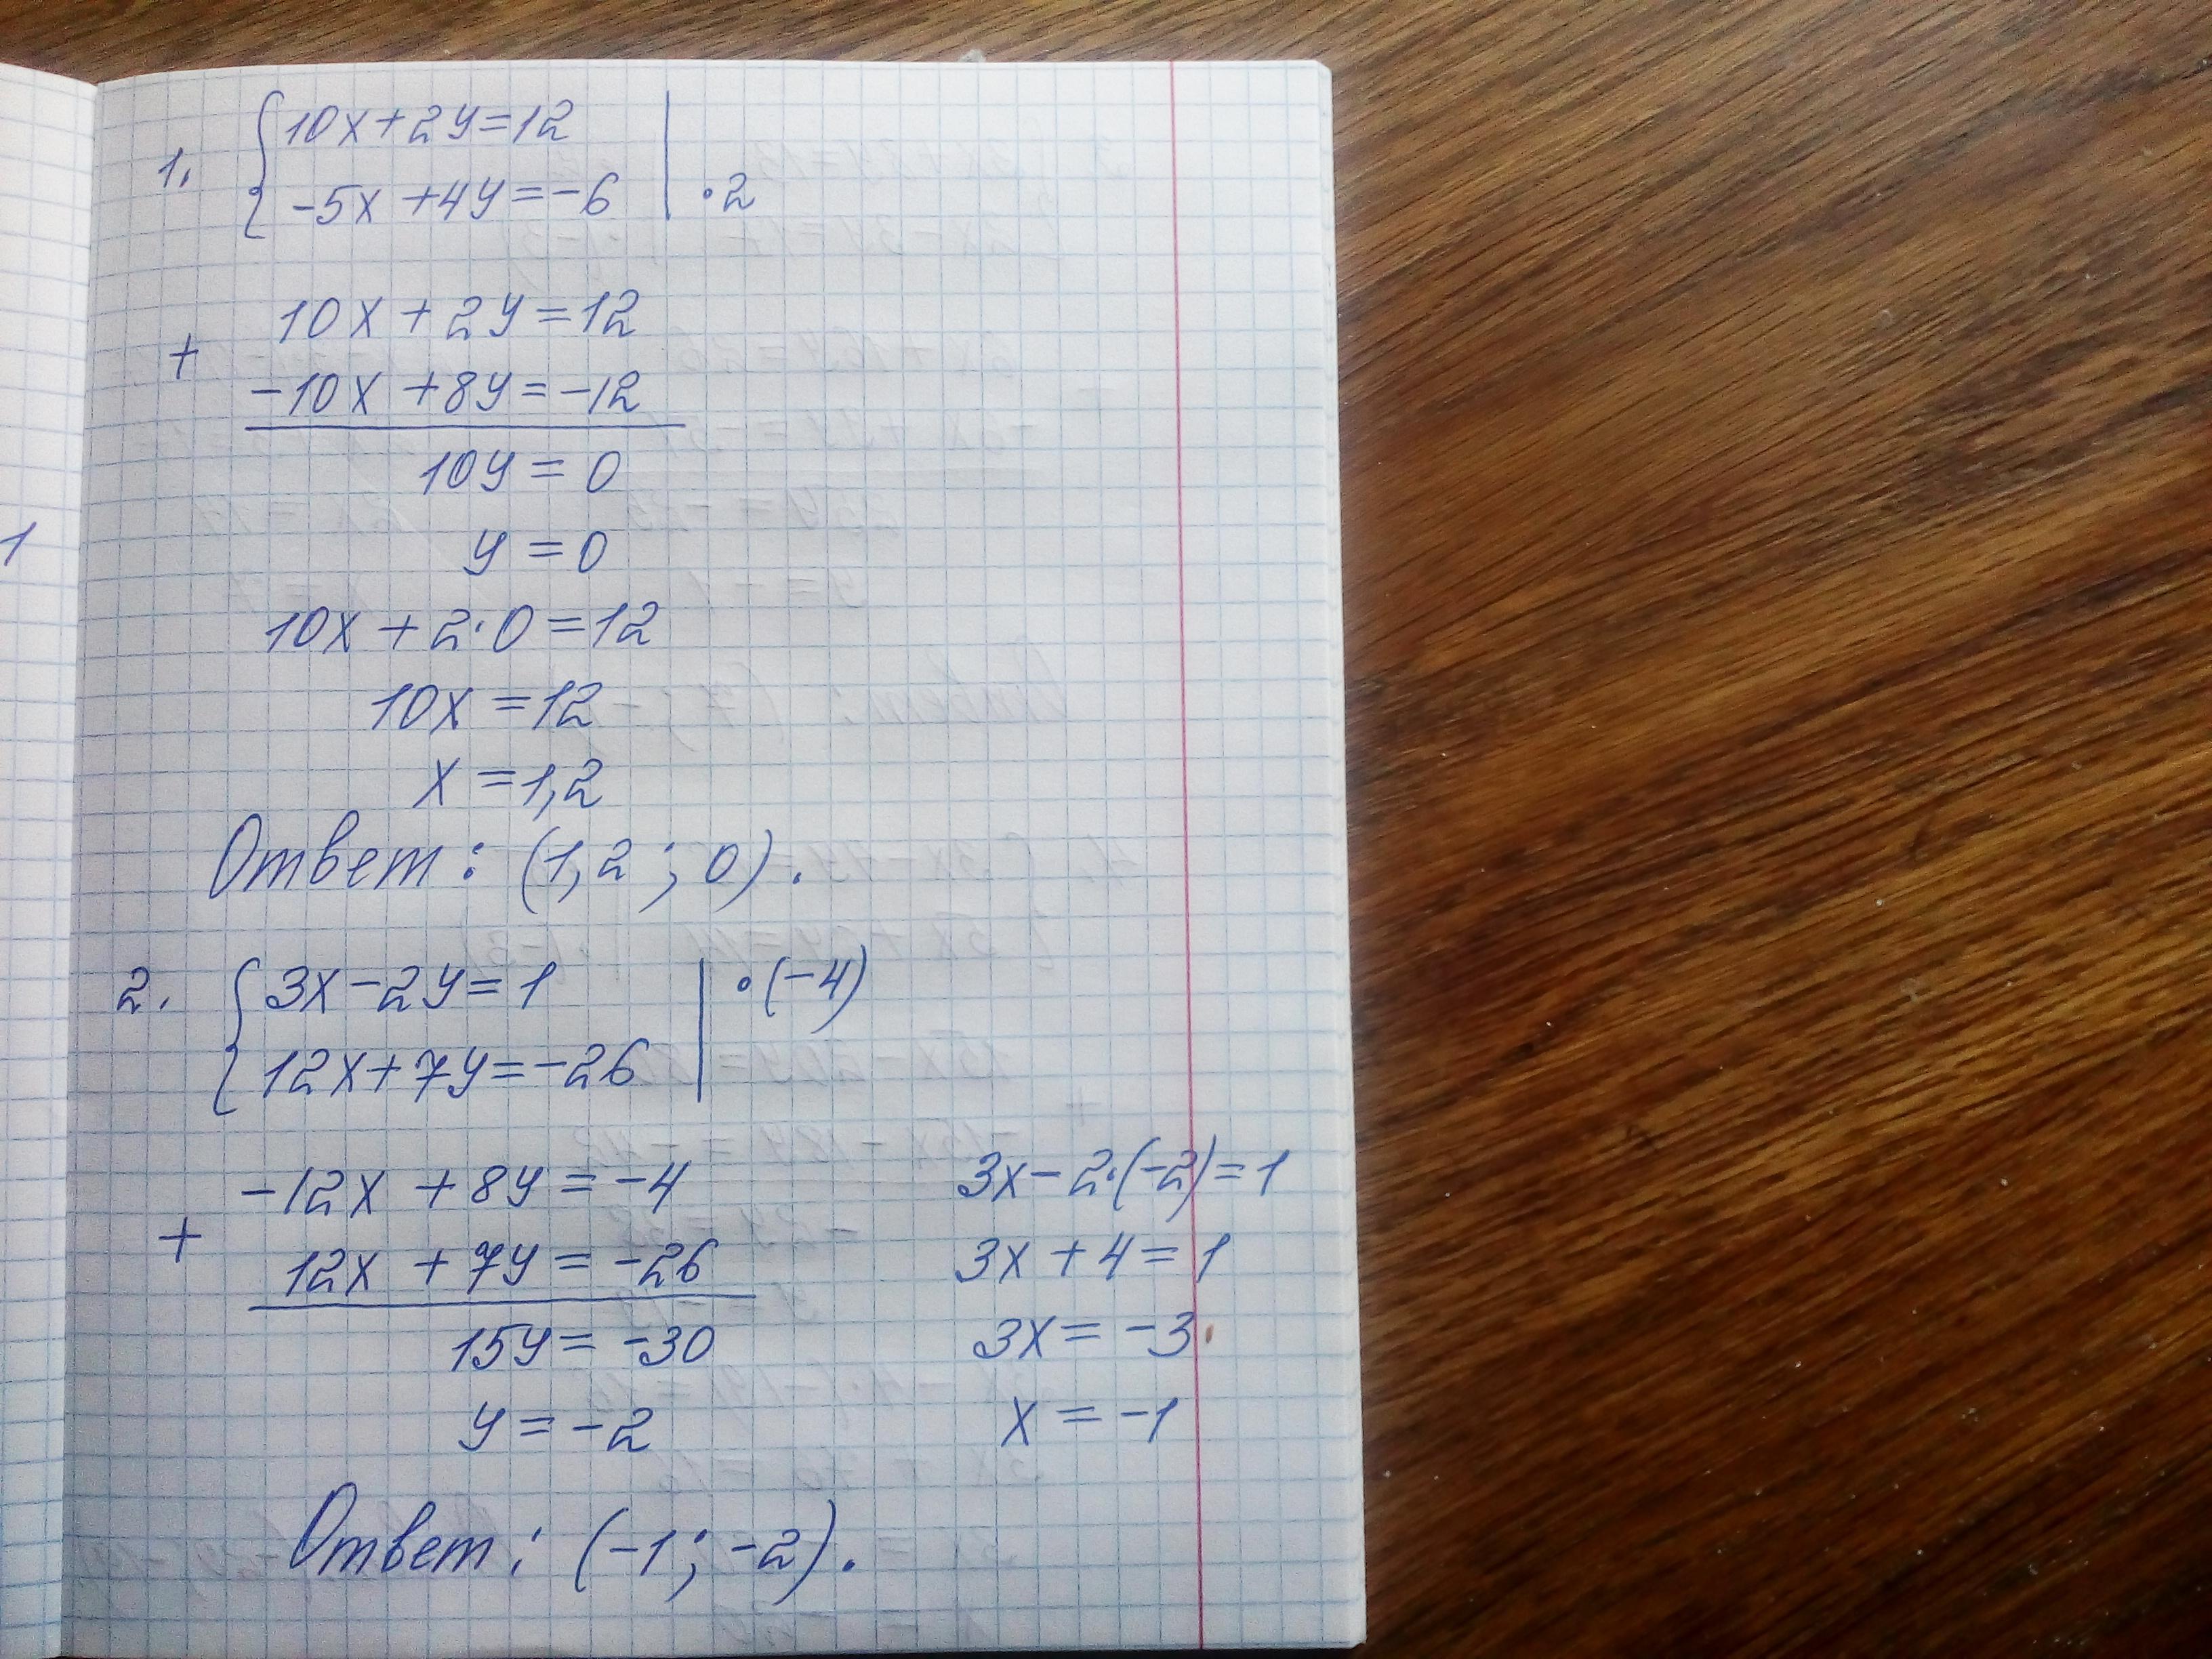 1
1. { 10x+2y=12
-5x+4y=-6 | ·2
10x+2y=12
+
-10x+8y=-12
10y=0
y=0
10x+2·0=12
10x=12
x=1,2
Ответ: (1,2; 0).
2. { 3x-2y=1 | ·(-4)
12x+7y=-26
-12x+8y=-4
+
12x+7y=-26
15y=-30
y=-2
3x-2·(-2)=1
3x+4=1
3x=-3
x=-1
Ответ: (-1; -2).